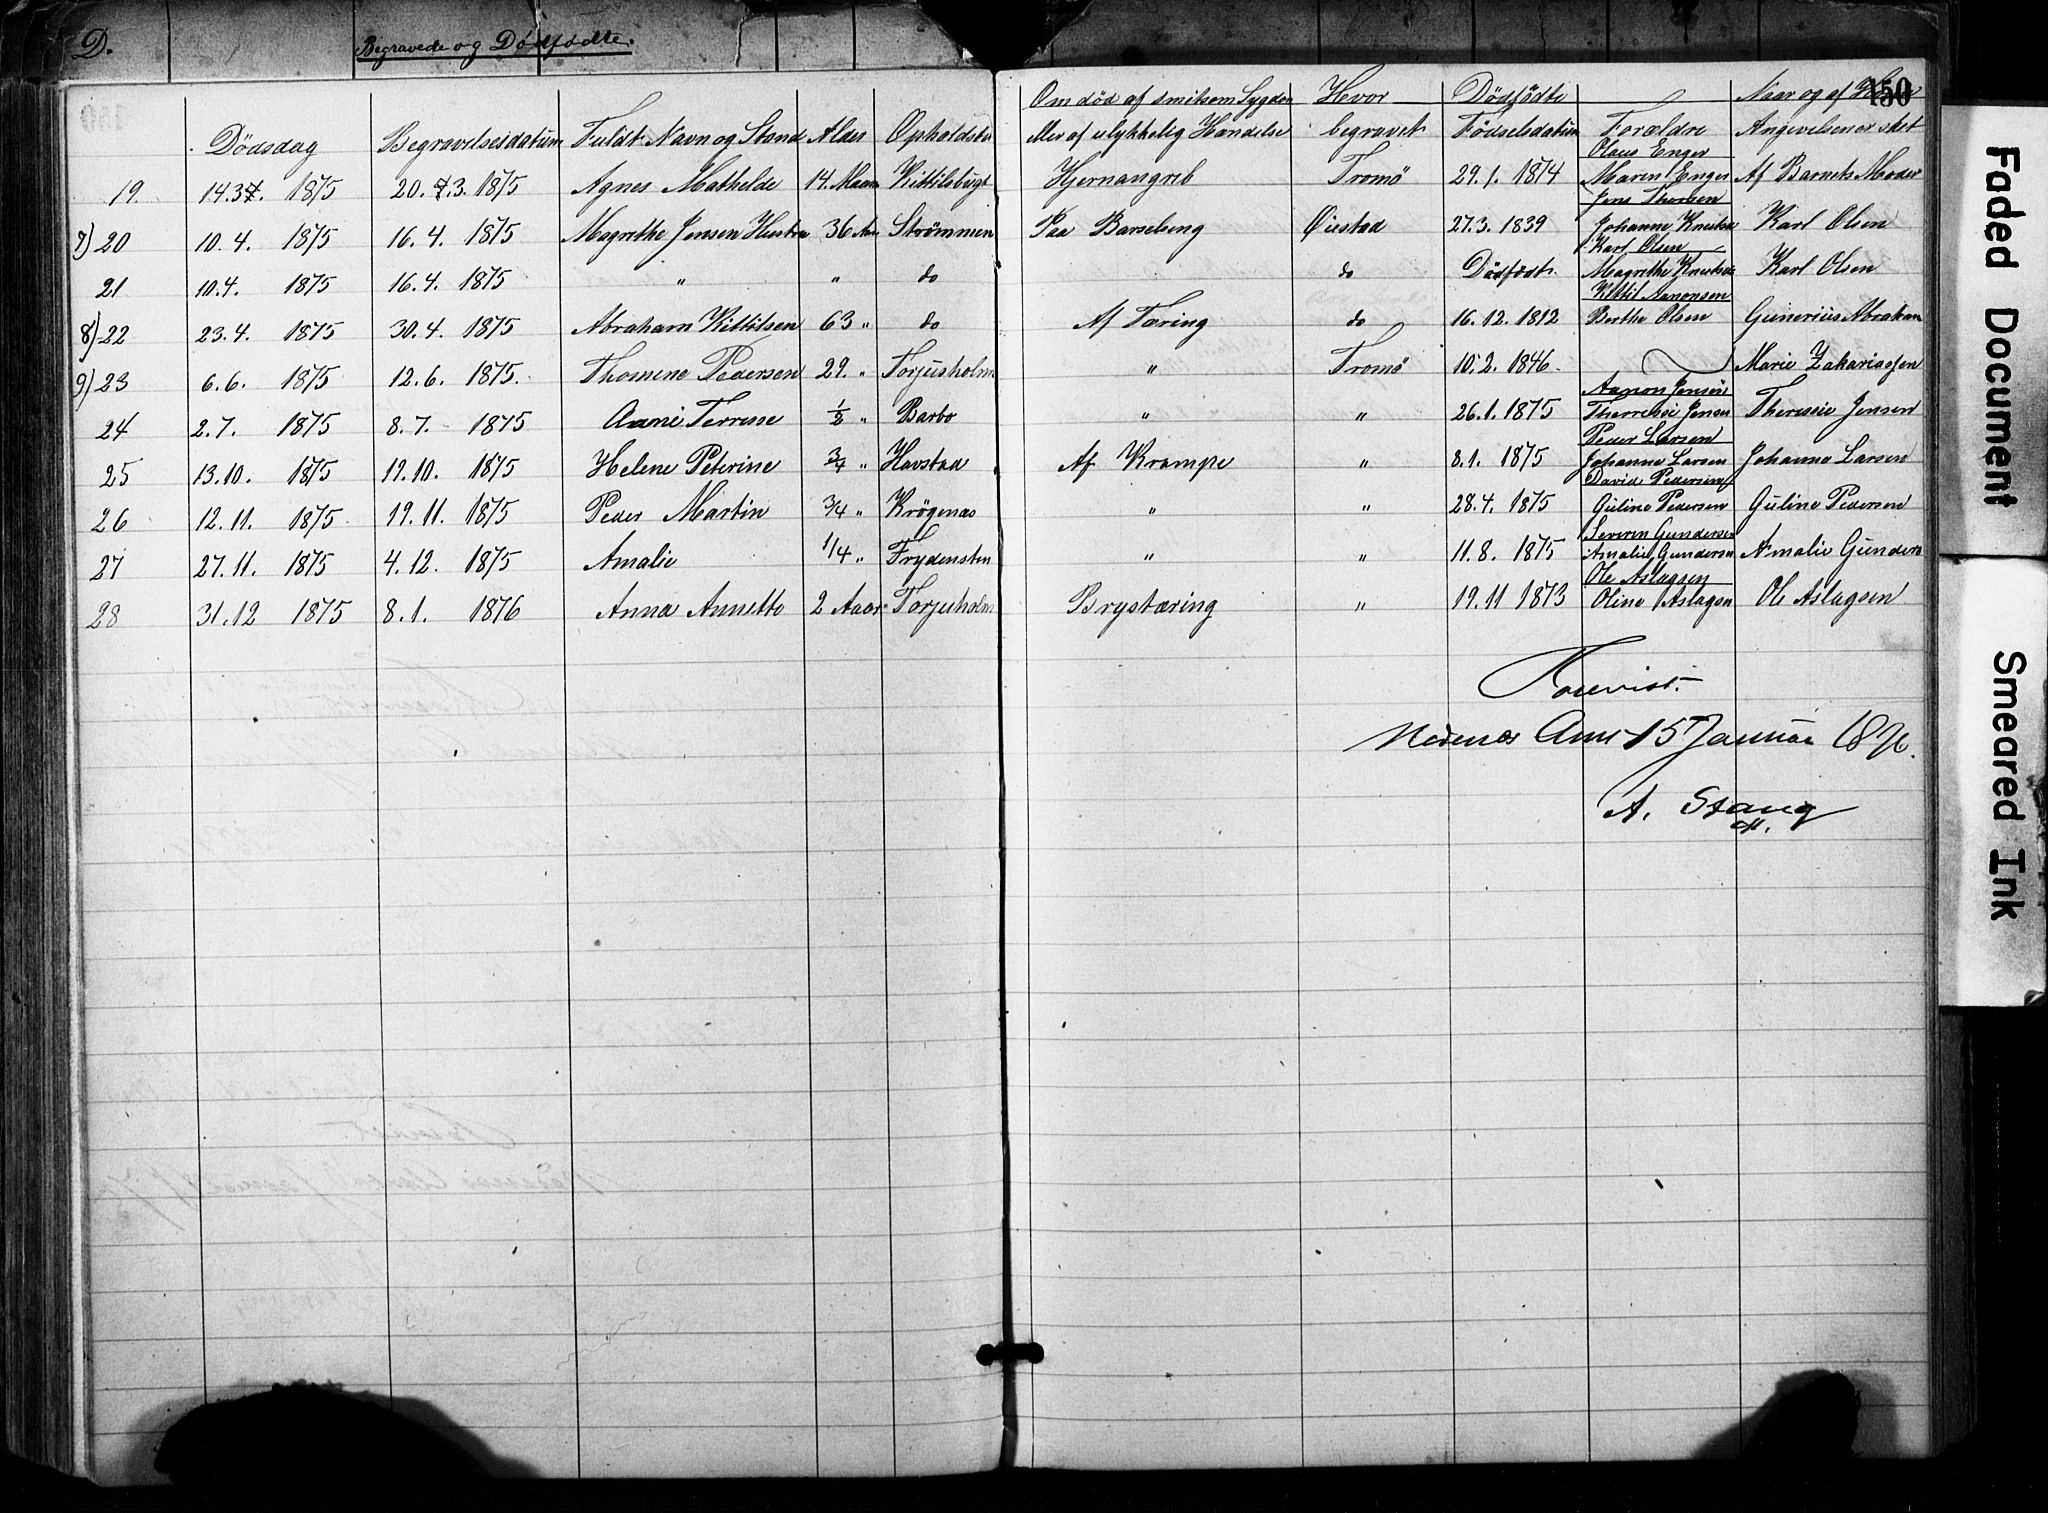 D. Begravede og Dødfødte.
150
Om død af smitsom Sygdom Hvor Dödfödte Naar og af
Dödsdag Begravelsesdatum Fuldt Navn og Stand Alder Opholdsted eller af ulykkelig Händelse begravet Födselsdatum Forældre Angivelsen er sket
Olaus Enger
19 14.3. 1875 20. 3. 1875 Agnes Mathelde 14. Maan Kittilsbugt Hjernangreb Tromö 29.1. 1874 Maren Enger Af Barnets Moder
Jens Thorsen
7) 20 10.4. 1875 16.4. 1875 Magrethe Jensen Hustru 36 Aar Strömmen Paa Barselseng Öiestad 27.3. 1839 Johanne Knutsen Karl Olsen
Karl Olsen
21 10.4. 1875 16.4. 1875 " " do " do Dödfödt. Magrethe Knutsen Karl Olsen
Kittil Aanonsen
8) 22 23.4. 1875 30.4. 1875 Abraham Kittilsen 63 " do Af Tæring do 16.12. 1812 Berthe Olsen Gunerius Abraham
9) 23 6.6. 1875 12.6. 1875. Thomene Pedersen 29. " Torjusholm " Tromö 10.2. 1846. Marie Zakariassen
Aanon Jensen
24 2.7. 1875 8.7. 1875 Aani Terresse 1/2 " Barbo " " 26.1. 1875 Therresie Jensen Theresie Jensen
Peder Larsen
25 13.10. 1875 19.10. 1875 Helene Peterine 3/4 " Havstad Af Krampe " 8.1. 1875 Johanne Larsen Johanne Larsen
David Pedersen
26 12.11. 1875 19.11. 1875 Peder Martin 3/4 " Krögenæs " " 28.4. 1875 Guline Pedersen Guline Pedersen
Severin Gundersen
27 27.11. 1875 4.12. 1875 Amalie 1/4 " Frydensten " " 11.8. 1875 Amalie Gundersen Amalie Gunders
Ole Aslagsen
28 31.12 1875 8.1. 1876 Anna Annette 2 Aar Torjusholm Brysttæring " 19.11 1873 Oline Aslagsen Ole Aslagsen
Forevist.
Nedenæs Amt 15 Januar 1876.
A. Stang
Faded Document
Smeared Ink